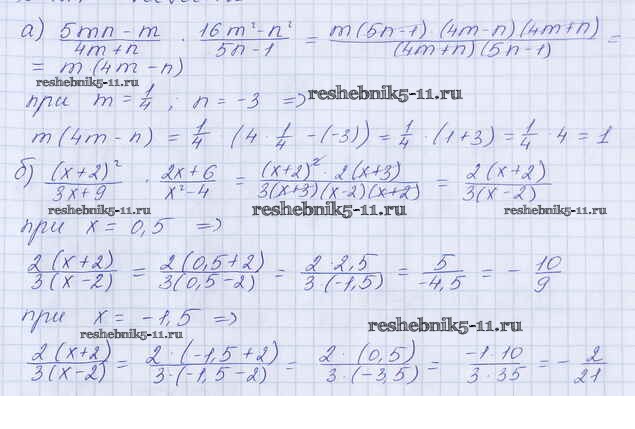 а) (5mn - m)/(4m + n) · (16m² - n²)/(5n - 1) = (m(5n-1)(4m-n)(4m+n))/((4m+n)(5n-1)) =
= m(4m - n)
reshebnik5-11.ru
при m = 1/4 ; n = -3 => reshebnik5-11.ru
m(4m - n) = 1/4 (4 · 1/4 - (-3)) = 1/4 · (1+3) = 1/4 · 4 = 1
б) (x+2)²/(3x+9) · (2x+6)/(x²-4) = ((x+2)² · 2(x+3))/(3(x+3)(x-2)(x+2)) = 2(x+2)/3(x-2)
reshebnik5-11.ru reshebnik5-11.ru reshebnik5-11.ru
при x = 0,5 =>
2(x+2)/3(x-2) = 2(0,5+2)/3(0,5-2) = 2·2,5/3·(-1,5) = 5/-4,5 = - 10/9
при x = -1,5 =>
reshebnik5-11.ru reshebnik5-11.ru
2(x+2)/3(x-2) = 2·(-1,5+2)/3·(-1,5-2) = 2·(0,5)/3·(-3,5) = -1·10/3·35 = - 2/21